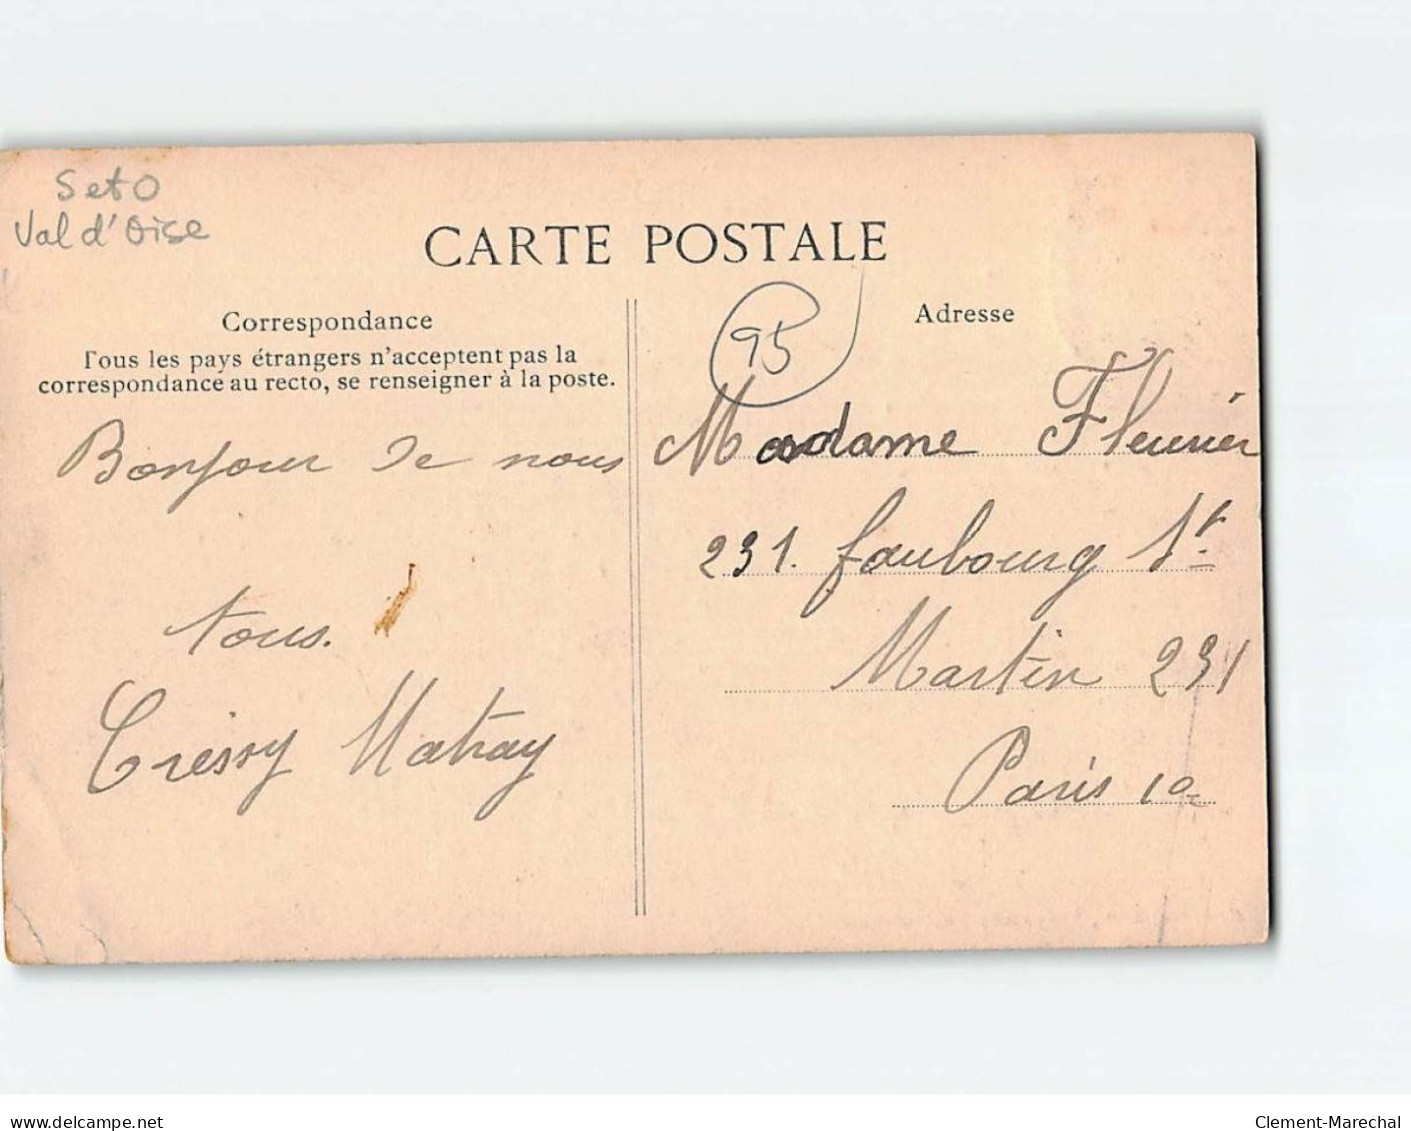 S et O
Val d'Oise
CARTE POSTALE
Correspondance
Tous les pays étrangers n'acceptent pas la
correspondance au recto, se renseigner à la poste.
Bonjour de nous
tous.
95
Adresse
Madame Fleurier
231. faubourg St
Martin 231
Paris 10
www.delcampe.net
Clement-Marechal